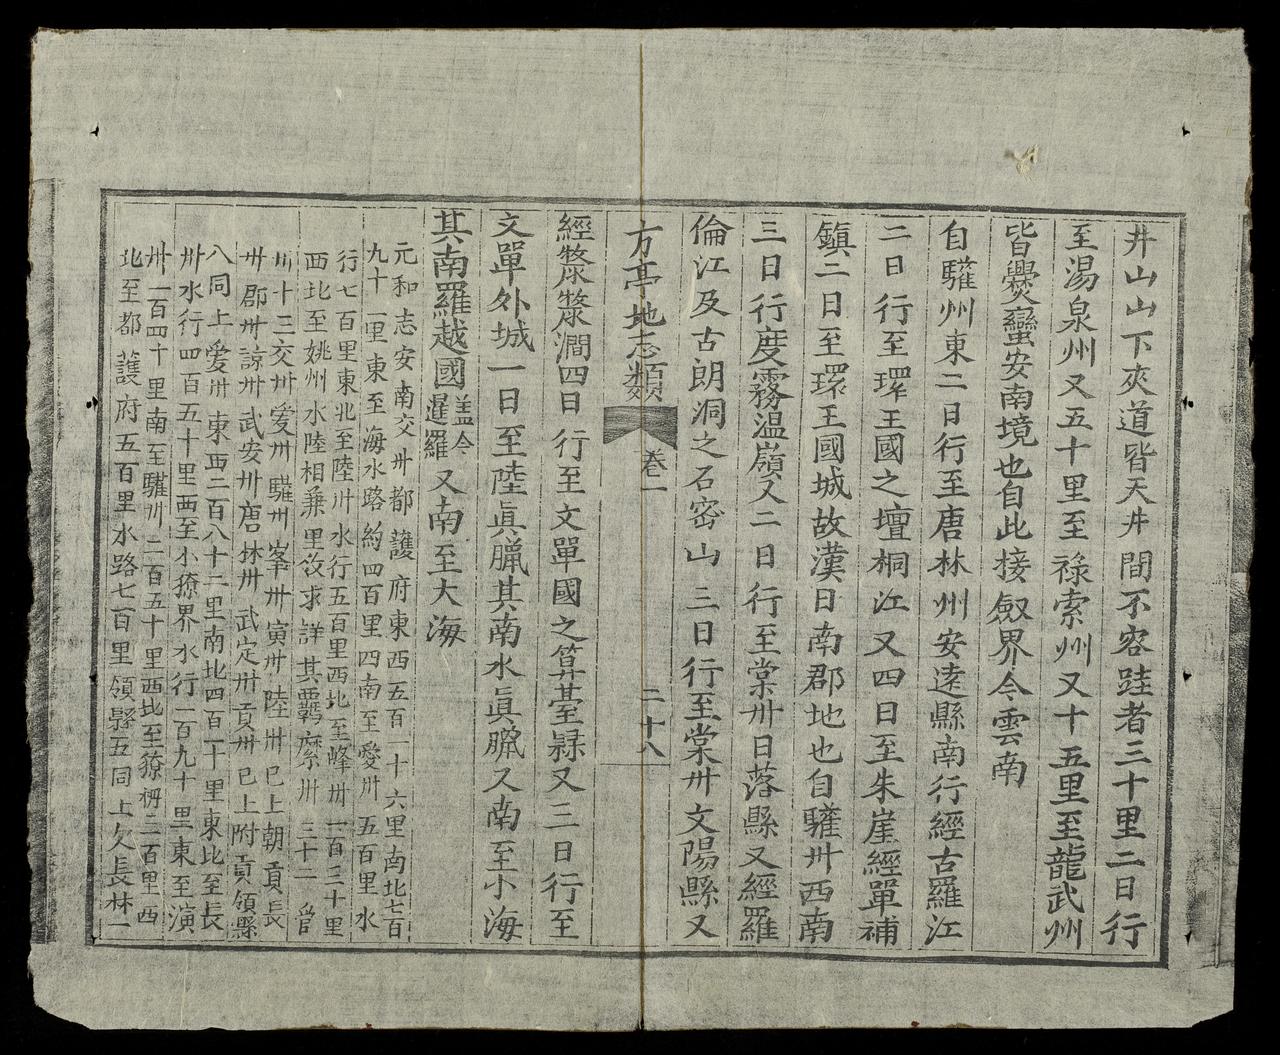 井山山下夾道皆天井間不容跬者三十里二日行
至湯泉州又五十里至祿索州又十五里至龍武州
皆爨蠻安南境也自此接劔界今雲南
自驩州東二日行至唐林州安遠縣南行經古羅江
二日行至環王國之壇桐江又四日至朱崖經單補
鎮二日至環王國城故漢日南郡地也自驩卅西南
三日行度霧溫嶺又二日行至棠卅日落縣又經羅
倫江及古朗洞之石密山三日行至棠卅文陽縣又
方亭地志類 卷一 二十八
經漦漦澗四日行至文單國之筭臺縣又三日行至
文單外城一日至陸眞臘其南水眞臘又南至小海
其南羅越國盖今暹羅又南至大海
元和志安南交卅都護府東西五百一十六里南北七百
九十一里東至海水路約四百里四南至愛卅五百里水
行七百里東北至陸卅水行五百里西北至峰卅一百三十里
西北至姚州水陸相兼里𢿙求詳其覊縻卅三十二管
卅十三交卅爱卅驩卅峯卅演卅陸卅已上朝貢長
卅郡卅諒卅武安卅唐林卅武定卅貢卅已上附貢領縣
八同上爱卅東西二百八十二里南北四百一十里東北至長
卅水行四百五十里西至小獠界水行一百九十里東至演
卅一百四十里南至驩卅二百五十里西北至獠柵二百里西
北至都護府五百里水路七百里領縣五同上久長林一